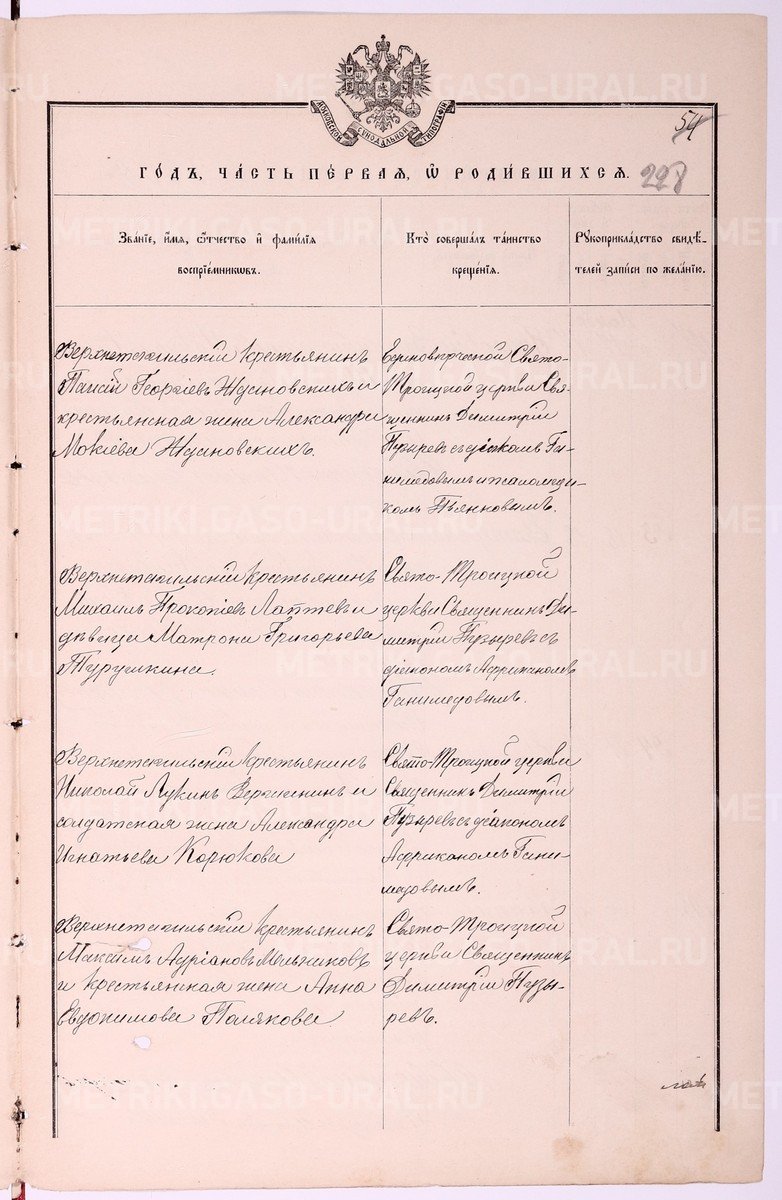 МОСКОВСКОЙ СѴНОДАЛЬНОЙ ТИПОГРАФІИ
54
ГОДЪ, ЧАСТЬ ПЕРВАЯ, Ѡ РОДИВШИХСЯ.
228
Званіе, имя, ѻтчество и фамилія
воспріемниковъ.
Кто совершалъ таинство
крещенія.
Рукоприкладство свидѣ-
телей записи по желанію.
Верхнетагильскій крестьянинъ
Паисій Георгіевъ Жуиновскихъ и
крестьянская жена Александра
Мокіева Жуиновскихъ.
Единовѣрческой Свято-
Троицкой церкви Свя-
щенникъ Димитрій
Пузыревъ съ діакономъ Га-
нимедовымъ и псаломщи-
комъ Пьянковымъ.
Верхнетагильскій крестьянинъ
Михаилъ Прокопіевъ Лаптевъ и
дѣвица Матрона Григорьева
Турушкина.
Свято-Троицкой
церкви Священникъ Ди-
митрій Пузыревъ съ
діакономъ Африканомъ
Ганимедовымъ.
Верхнетагильскій крестьянинъ
Николай Лукинъ и
солдатская жена Александра
Игнатьева Корюкова
Свято-Троицкой церкви
Священникъ Димитрій
Пузыревъ съ діакономъ
Африканомъ Гани-
медовымъ.
Верхнетагильскій крестьянинъ
Максимъ Адріановъ Мельниковъ
и крестьянская жена Анна
Евдокимова Полякова
Свято-Троицкой
церкви Священникъ
Димитрій Пузы-
ревъ.
METRIKI.GASO-URAL.RU